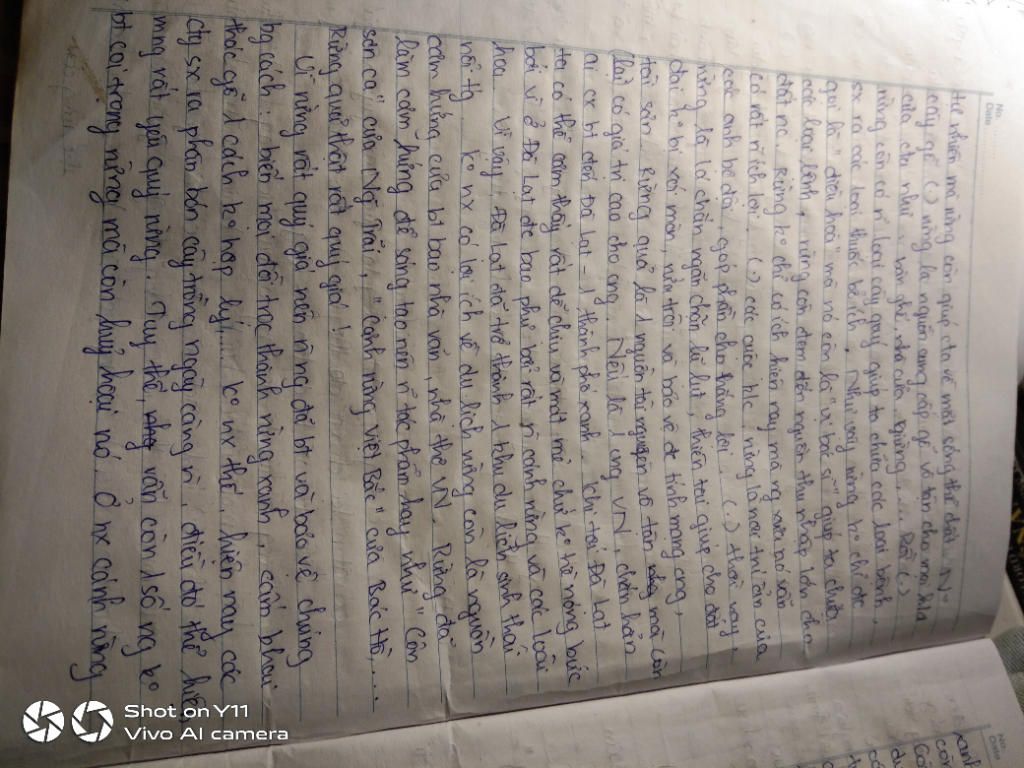 No.
Date
tự nhiên mà rừng còn giúp cta về mặt sống thể chất. N~
cây gỗ (.) rừng là nguồn cung cấp gỗ vô tận cho mọi
của cta như : bàn ghế, nhà cửa, giường ,... Rồi (.)
rừng còn có n~ loại cây quý giúp ta chữa các loại bệnh,
sx ra các loại thuốc bổ ích. Như vậy rừng ko chỉ đc
gọi là " điều hoà" mà nó còn là " vị bác sĩ " giúp ta chữa
các loại bệnh, rừng còn đem đến nguồn thu nhập lớn cho
đất nc. Rừng ko chỉ có ích hiện nay mà ng xưa nó vẫn
có rất n` ích lợi. (.) các cuộc k/c rừng là nơi trú ẩn của
các anh bộ đội, góp phần cho thắng lợi. (.) thời nay,
rừng là lá chắn ngăn chặn lũ lụt, thiên tai giúp cho đất
đai ko bị xói mòn, rửa trôi và bảo vệ đc tính mạng cng,
tài sản. Rừng quả là 1 nguồn tài nguyên vô tận mà còn
có giá trị cao cho cng. Nếu là ng VN, chắn hẳn
ai cx bt đến Đà Lạt - 1 thành phố xanh. Khi tới Đà Lạt
ta có thể cảm thấy rất dễ chịu và mát mẻ chứ ko hề nóng bức
bởi vì ở Đà Lạt đc bao phủ bởi rất n` cánh rừng và các loài
hoa. Vì vậy, Đà Lạt đã trở thành 1 khu du lịch sinh thái
nổi tg. ko nx có lợi ích về du lịch rừng còn là nguồn
cảm hứng của bt bao nhà văn, nhà thơ VN. Rừng đã
làm cảm hứng để sáng tạo nên n~ tác phẩm hay như " Côn
sơn ca" của Ng~ Trãi, " cảnh rừng việt Bắc" của Bác Hồ,...
Rừng quả thật rất quý giá!
Vì rừng rất quý giá nên n` ng đã bt và bảo vệ chúng
bg cách: biến môi đồi trọc thành rừng xanh, cấm khai
thác gỗ 1 cách ko hợp lý,... ko nx thế, hiện nay các
cty sx ra phân bón cây trồng ngày càng n`, điều đó thể hiện
mng rất yêu quý rừng. Tuy thế, vẫn còn 1 số ng ko
bt coi trọng rừng mà còn huỷ hoại nó. Ở nx cánh rừng
No.
Date
Shot on Y11
Vivo AI camera